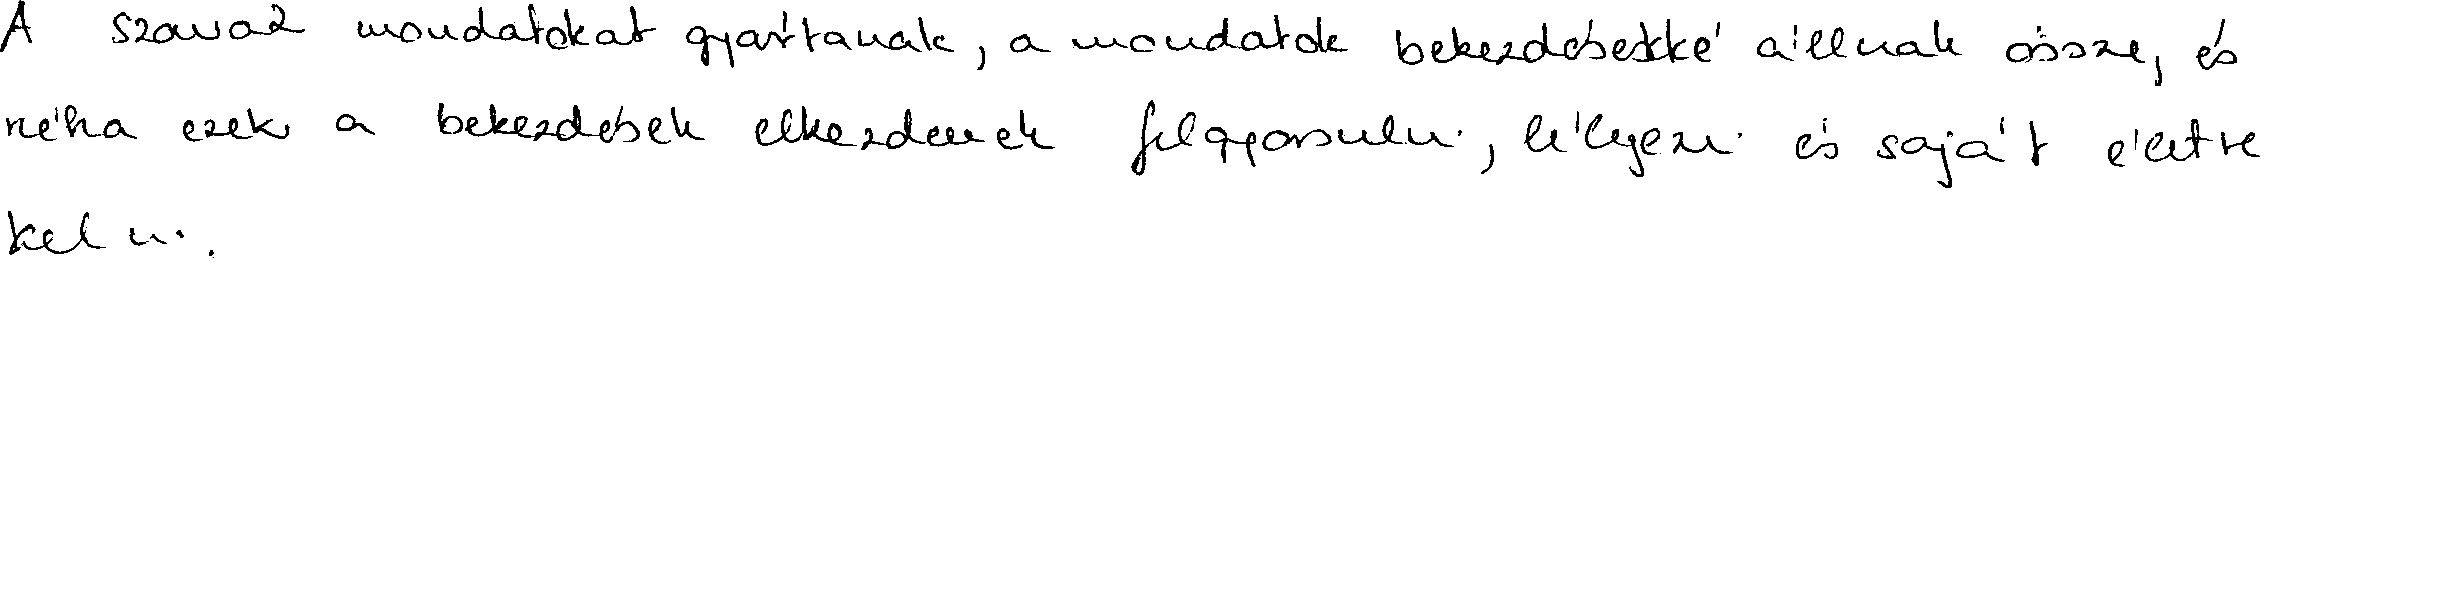 A szavak mondatokat gyártanak, a mondatok bekezdésekké állnak össze, és
néha ezek a bekezdések elkezdenek felgyorsulni, lélegezni és saját életre
kelni.